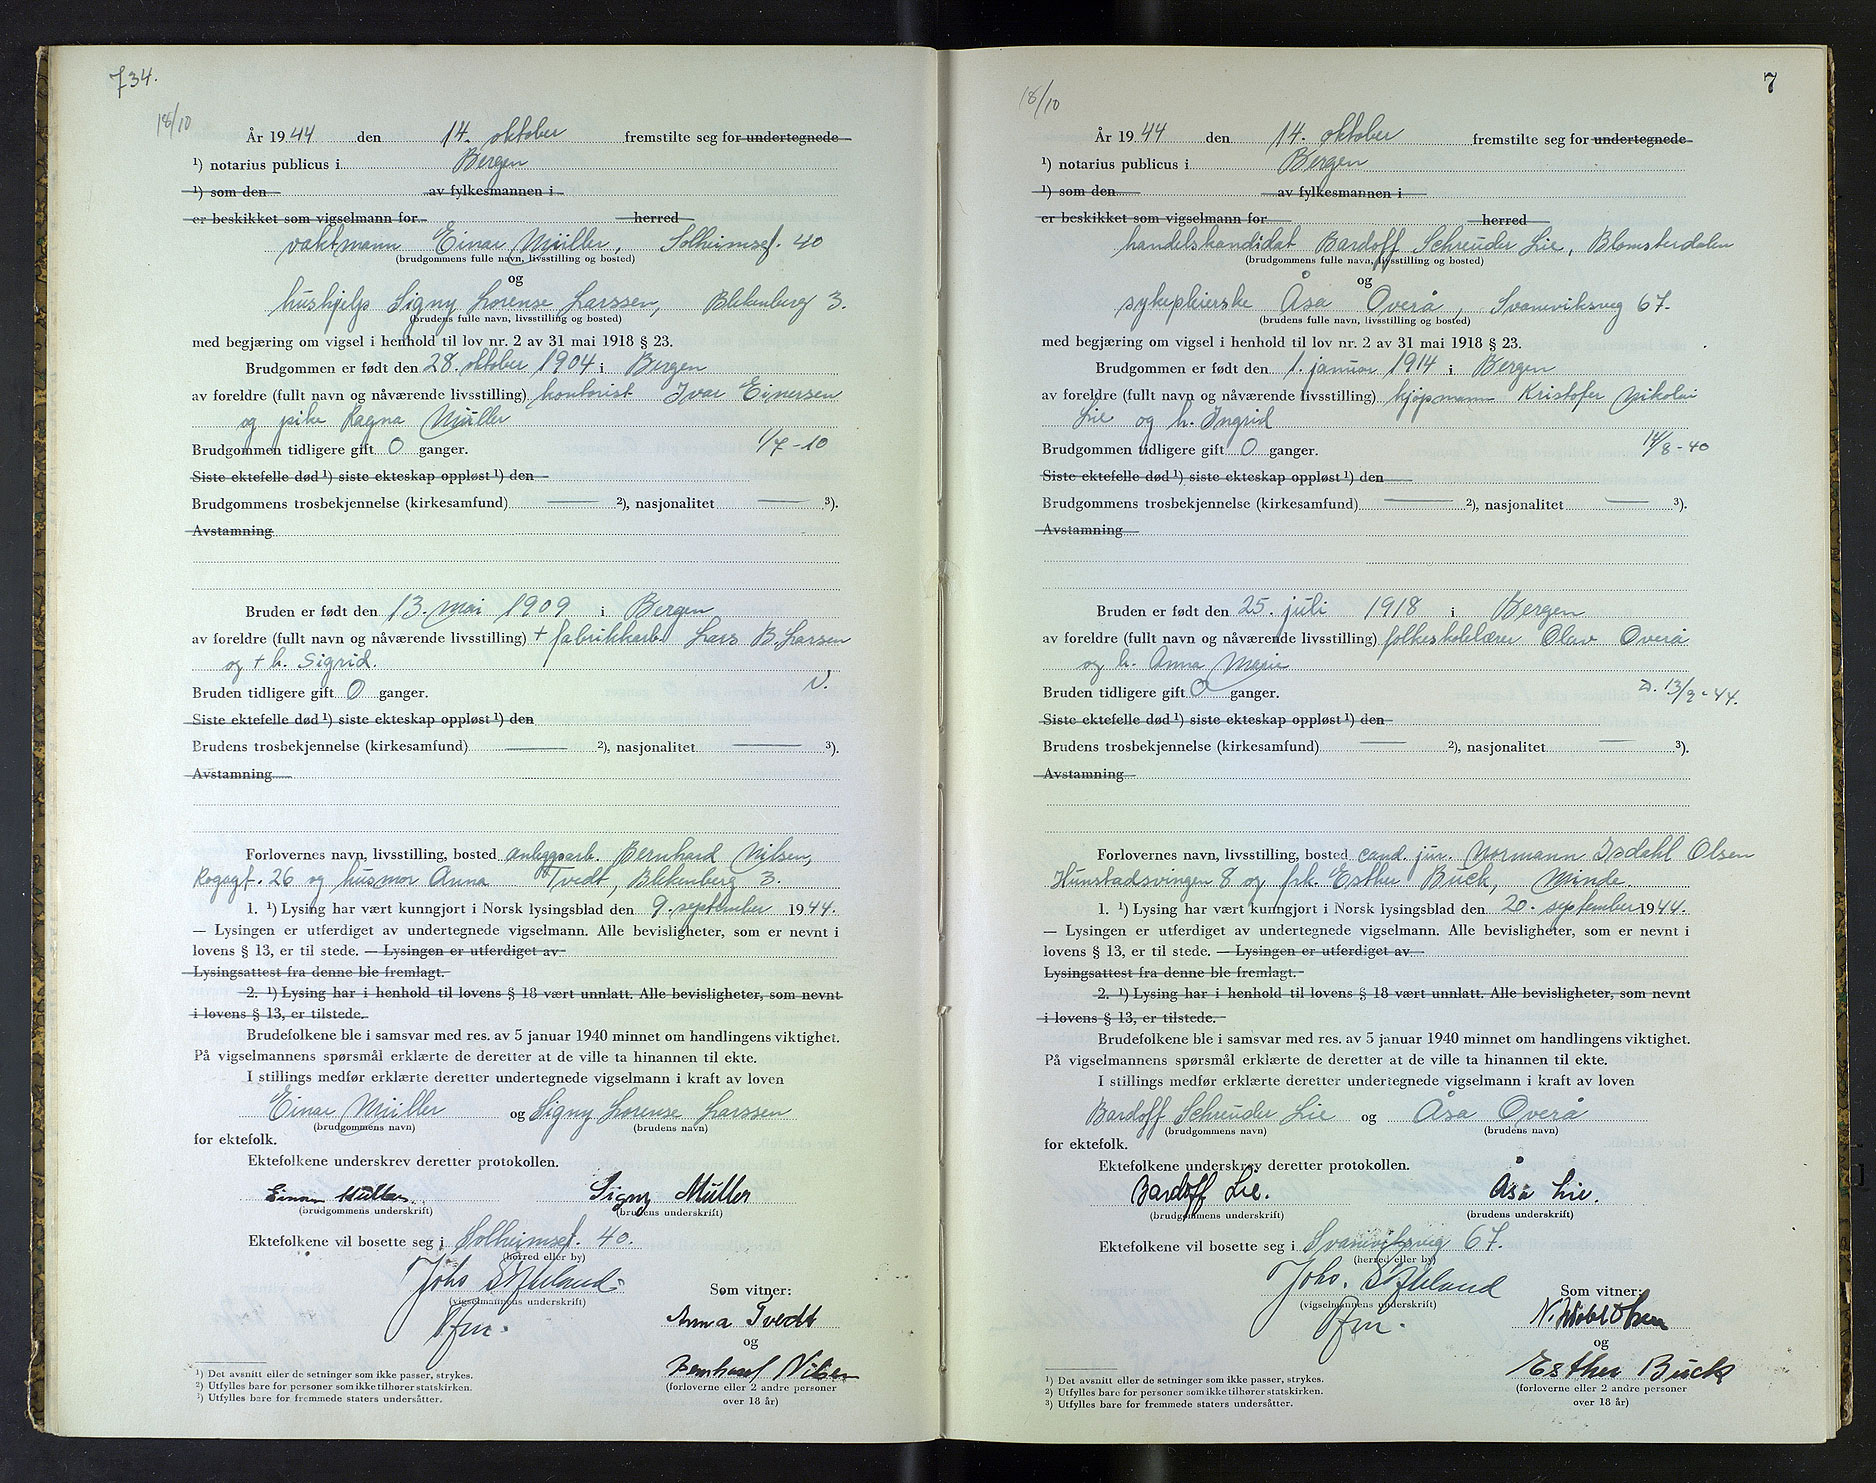 734.
18/10
År 1944 den 14. oktober fremstilte seg for undertegnede
¹) notarius publicus i Bergen
¹) som den av fylkesmannen i
er beskikket som vigselmann for herred
vaktmann Einar Müller, Solheimsgt. 40
(brudgommens fulle navn, livsstilling og bosted)
og
hushjelp Signy Lorense Larssen, Blekenberg 3.
(brudens fulle navn, livsstilling og bosted)
med begjæring om vigsel i henhold til lov nr. 2 av 31 mai 1918 § 23.
Brudgommen er født den 28. oktober 1904 i Bergen
av foreldre (fullt navn og nåværende livsstilling) kontorist Ivar Einersen
og pike Ragna Müller
Brudgommen tidligere gift 0 ganger. 1/7-10
Siste ektefelle død ¹) siste ekteskap oppløst ¹) den
Brudgommens trosbekjennelse (kirkesamfund) — ²), nasjonalitet — ³).
Avstamning
Bruden er født den 13. mai 1909 i Bergen
av foreldre (fullt navn og nåværende livsstilling) + fabrikkarb. Lars B. Larsen
og + h. Sigrid.
Bruden tidligere gift 0 ganger. V.
Siste ektefelle død ¹) siste ekteskap oppløst ¹) den
Brudens trosbekjennelse (kirkesamfund) — ²), nasjonalitet — ³).
Avstamning
Forlovernes navn, livsstilling, bosted anleggsarb. Bernhard Nilsen,
26 og husmor Anna Tvedt, Blekenberg 3.
1. ¹) Lysing har vært kunngjort i Norsk lysingsblad den 9. september 1944.
— Lysingen er utferdiget av undertegnede vigselmann. Alle bevisligheter, som er nevnt i
lovens § 13, er til stede. — Lysingen er utferdiget av
Lysingsattest fra denne ble fremlagt.
2. ¹) Lysing har i henhold til lovens § 18 vært unnlatt. Alle bevisligheter, som nevnt
i lovens § 13, er tilstede.
Brudefolkene ble i samsvar med res. av 5 januar 1940 minnet om handlingens viktighet.
På vigselmannens spørsmål erklærte de deretter at de ville ta hinannen til ekte.
I stillings medfør erklærte deretter undertegnede vigselmann i kraft av loven
Einar Müller og Signy Lorense Larssen
(brudgommens navn) (brudens navn)
for ektefolk.
Ektefolkene underskrev deretter protokollen.
Einar Müller. Signy Müller
(brudgommens underskrift) (brudens underskrift)
Ektefolkene vil bosette seg i Solheimsgt. 40.
(herred eller by)
Johs
(vigselmannens underskrift) Som vitner:
Anna Tvedt
og
Bernhard Nilsen
(forloverne eller 2 andre personer
over 18 år)
¹) Det avsnitt eller de setninger som ikke passer, strykes.
²) Utfylles bare for personer som ikke tilhører statskirken.
³) Utfylles bare for fremmede staters undersåtter.
7
18/10
År 1944 den 14. oktober fremstilte seg for undertegnede
¹) notarius publicus i Bergen
¹) som den av fylkesmannen i
er beskikket som vigselmann for herred
handelskandidat Bardoff Schreuder Lie, Blomsterdalen
(brudgommens fulle navn, livsstilling og bosted)
og
sykepleierske Åsa Overå, Svaneviksveg 67.
(brudens fulle navn, livsstilling og bosted)
med begjæring om vigsel i henhold til lov nr. 2 av 31 mai 1918 § 23.
Brudgommen er født den 1. januar 1914 i Bergen
av foreldre (fullt navn og nåværende livsstilling) kjøpmann Kristofer Nikolai
Lie og h. Ingrid
Brudgommen tidligere gift 0 ganger. 14/8-40
Siste ektefelle død ¹) siste ekteskap oppløst ¹) den
Brudgommens trosbekjennelse (kirkesamfund) — ²), nasjonalitet — ³).
Avstamning
Bruden er født den 25. juli 1918 i Bergen
av foreldre (fullt navn og nåværende livsstilling) folkeskolelærer Olav Overå
og h. Anna Marie
Bruden tidligere gift 0 ganger. D. 13/9-44.
Siste ektefelle død ¹) siste ekteskap oppløst ¹) den
Brudens trosbekjennelse (kirkesamfund) — ²), nasjonalitet — ³).
Avstamning
Forlovernes navn, livsstilling, bosted cand. jur. Normann Isdahl Olsen
Hunstadsvingen 8 og frk. Esther Buck, Minde
1. ¹) Lysing har vært kunngjort i Norsk lysingsblad den 20. september 1944.
— Lysingen er utferdiget av undertegnede vigselmann. Alle bevisligheter, som er nevnt i
lovens § 13, er til stede. — Lysingen er utferdiget av
Lysingsattest fra denne ble fremlagt.
2. ¹) Lysing har i henhold til lovens § 18 vært unnlatt. Alle bevisligheter, som nevnt
i lovens § 13, er tilstede.
Brudefolkene ble i samsvar med res. av 5 januar 1940 minnet om handlingens viktighet.
På vigselmannens spørsmål erklærte de deretter at de ville ta hinannen til ekte.
I stillings medfør erklærte deretter undertegnede vigselmann i kraft av loven
Bardoff Schreuder Lie og Åsa Overå
(brudgommens navn) (brudens navn)
for ektefolk.
Ektefolkene underskrev deretter protokollen.
Bardoff Lie. Åsa Lie.
(brudgommens underskrift) (brudens underskrift)
Ektefolkene vil bosette seg i Svaneviksveg 67.
(herred eller by)
Johs.
(vigselmannens underskrift) Som vitner:
N. Isdahl Olsen
og
Esther Buck
(forloverne eller 2 andre personer
over 18 år)
¹) Det avsnitt eller de setninger som ikke passer, strykes.
²) Utfylles bare for personer som ikke tilhører statskirken.
³) Utfylles bare for fremmede staters undersåtter.